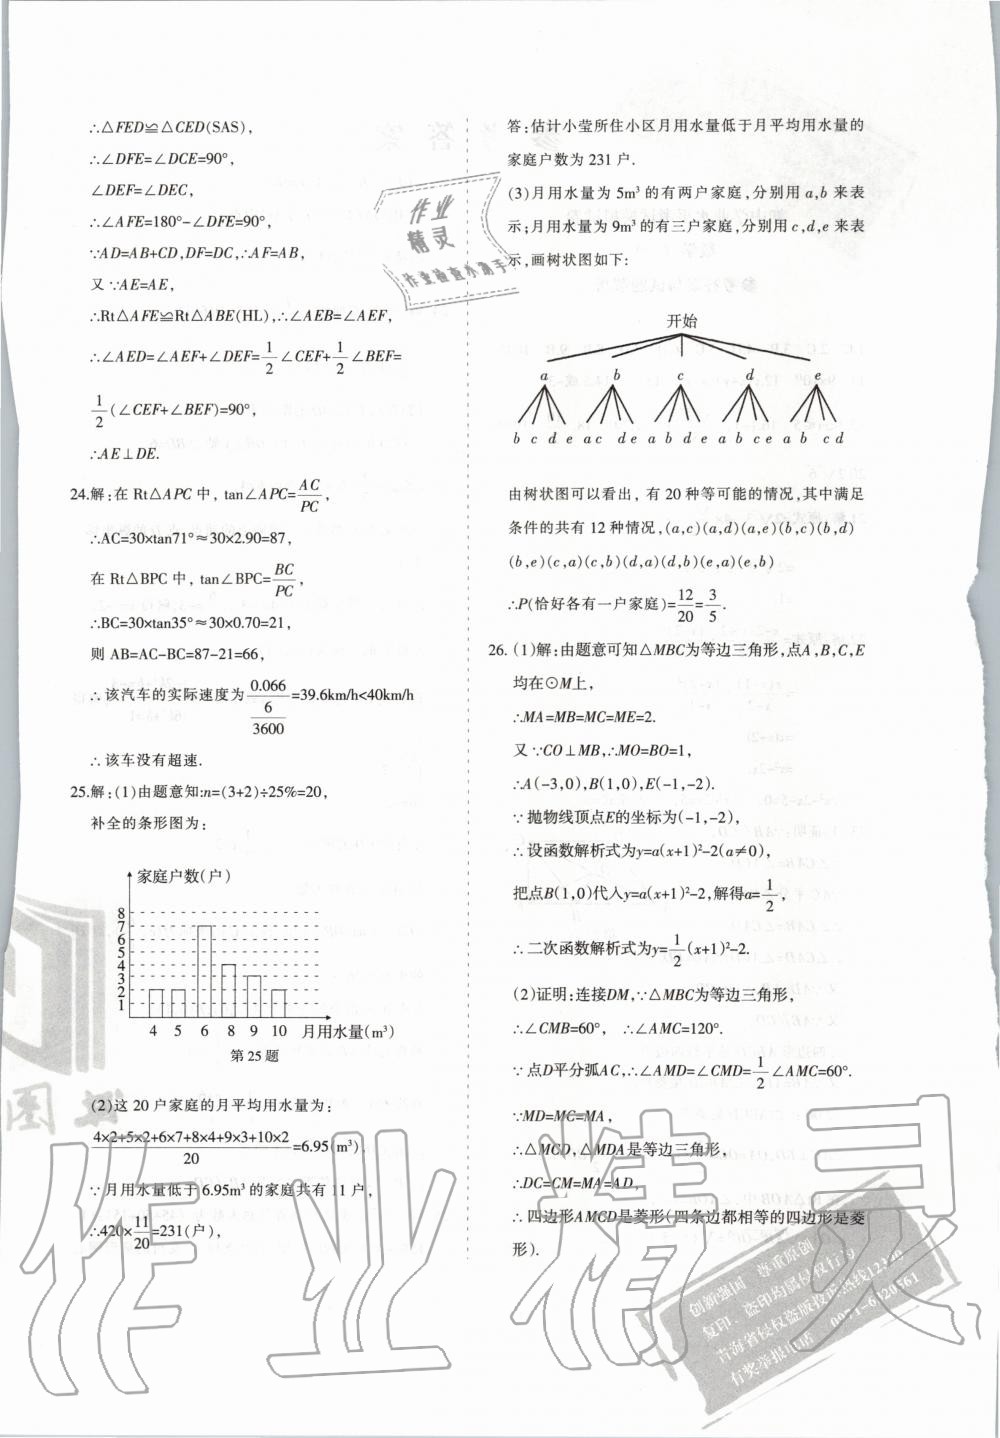 ∴△FED≌△CED(SAS),
∴∠DFE=∠DCE=90°,
∠DEF=∠DEC,
∴∠AFE=180°-∠DFE=90°,
∵AD=AB+CD,DF=DC,∴AF=AB,
又∵AE=AE,
∴Rt△AFE≌Rt△ABE(HL),∴∠AEB=∠AEF,
∴∠AED=∠AEF+∠DEF=1/2∠CEF+1/2∠BEF=
1/2(∠CEF+∠BEF)=90°,
∴AE⊥DE.
24.解:在 Rt△APC 中, tan∠APC=AC/PC,
∴AC=30×tan71°≈30×2.90=87,
在 Rt△BPC 中, tan∠BPC=BC/PC,
∴BC=30×tan35°≈30×0.70=21,
则 AB=AC-BC=87-21=66,
∴该汽车的实际速度为 0.066/(6/3600)=39.6km/h<40km/h
∴该车没有超速.
25.解:(1)由题意知:n=(3+2)÷25%=20,
补全的条形图为:
家庭户数(户)
8
7
6
5
4
3
2
1
4 5 6 8 9 10 月用水量(m³)
第 25 题
(2)这 20 户家庭的月平均用水量为:
(4×2+5×2+6×7+8×4+9×3+10×2)/20=6.95(m³)
∵月用水量低于 6.95m³ 的家庭共有 11 户,
∴420×11/20=231(户),
答:估计小莹所住小区月用水量低于月平均用水量的
家庭户数为 231 户.
(3)月用水量为 5m³ 的有两户家庭,分别用 a,b 来表
示;月用水量为 9m³ 的有三户家庭,分别用 c,d,e 来表
示,画树状图如下:
开始
a b c d e
b c d e a c d e a b d e a b c e a b c d
由树状图可以看出, 有 20 种等可能的情况,其中满足
条件的共有 12 种情况,(a,c)(a,d)(a,e)(b,c)(b,d)
(b,e)(c,a)(c,b)(d,a)(d,b)(e,a)(e,b)
∴P(恰好各有一户家庭)=12/20=3/5.
26.(1)解:由题意可知△MBC为等边三角形,点A,B,C,E
均在⊙M上,
∴MA=MB=MC=ME=2.
又∵CO⊥MB,∴MO=BO=1,
∴A(-3,0),B(1,0),E(-1,-2).
∵抛物线顶点E的坐标为(-1,-2),
∴设函数解析式为y=a(x+1)²-2(a≠0),
把点B(1,0)代入y=a(x+1)²-2,解得a=1/2,
∴二次函数解析式为y=1/2(x+1)²-2.
(2)证明:连接DM,∵△MBC为等边三角形,
∴∠CMB=60°, ∴∠AMC=120°.
∵点D平分弧AC,∴∠AMD=∠CMD=1/2∠AMC=60°.
∵MD=MC=MA,
∴△MCD,△MDA是等边三角形,
∴DC=CM=MA=AD,
∴四边形AMCD是菱形(四条边都相等的四边形是菱
形).
作业
精灵
作业检查小助手
作业精灵
创新强国 尊重原创
复印、盗印均属侵权行为
青海省侵权盗版投诉热线12390
有奖举报电话